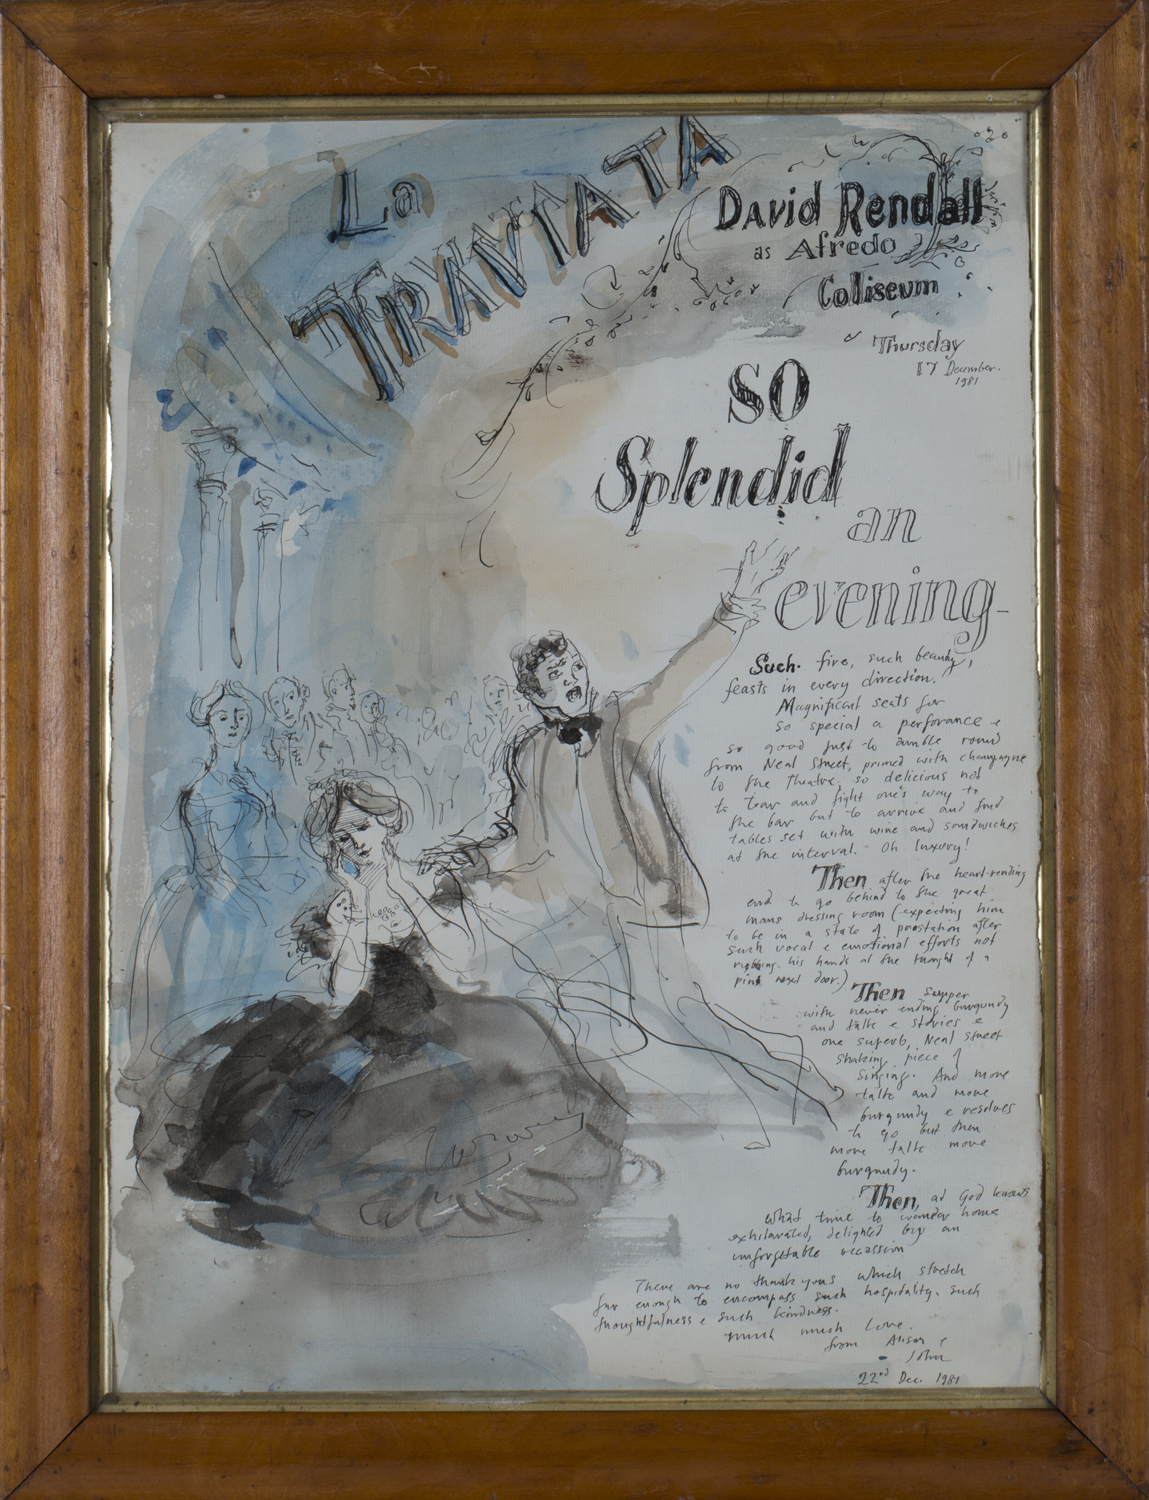 La
TRAVIATA
David Rendall
as Afredo
Coliseum
Thursday
17 December.
1981
SO
Splendid
an
evening-
Such fire, such beauty,
feasts in every direction.
Magnificent seats for
so special a perforance &
so good just to amble round
from Neal Street, primed with champagne
to the theatre, so delicious not
to tear and fight one's way to
the bar but to arrive and find
tables set with wine and sandwiches
at the interval. - Oh luxury!
Then after the heart-rending
end to go behind to the great
mans dressing room (expecting him
to be in a state of prostation after
such vocal & emotional efforts not
rubbing his hands at the thought of a
pint next door.)
Then supper
with never ending burgundy
and talk & stories &
one superb, Neal Street
shaking piece of
singing. And more
talk and more
burgundy & resolves
to go but then
more talk more
burgundy.
Then, at God knows
what time to wander home
exhilarated, delighted by an
unforgetable occassion
There are no thank yous which stretch
far enough to encompass such hospitality. such
thoughtfulness & such kindness.
much much love.
from Alison &
John
22nd Dec. 1981